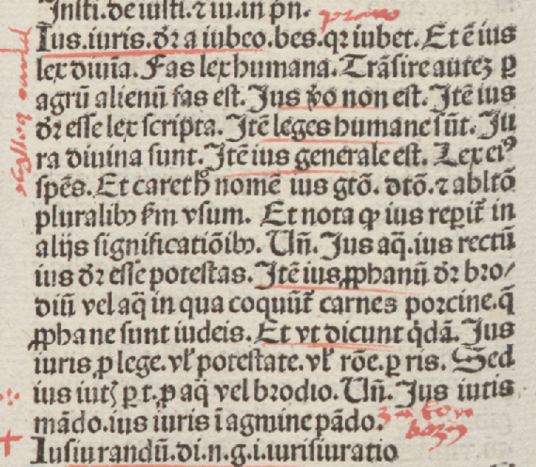 Insti.de iusti.⁊ iu.in pn̄.
Ius.iuris.dr̄ a iubeo.bes.qꝛ iubet. Et ē ius
lex diuīa. Fas lex humana. Trāsire auteꝫ ꝑ
agrū alienū fas est. Jus ꝟo non est. Jtē ius
dr̄ esse lex scripta. Jtē leges humane sūt. Ju
ra diuina sunt. Jtē ius generale est. Lex eiꝰ
spēs. Et caret hͦ nomē ius gtō. dtō. ⁊ abltō
pluralibꝫ ẜm vsum. Et nota ꝙ ius reperit̄ in
alijs significatiōibꝫ. Un̄. Jus aq̄. ius rectū
ius dr̄ esse potestas. Jtē ius ꝓphanū dr̄ bro/
diū vel aq̄ in qua coquūt̄ carnes porcine. q̄
ꝓphane sunt iudeis. Et vt dicunt qͥdā. Jus
iuris ꝓ lege. vl̓ potestate. vl̓ rōe. ꝑ ris. Sed
ius iutꝭ ꝑ t. ꝓ aq̄ vel brodio. Un̄. Jus iutis
mādo. ius iuris ī agmine pādo.
Iusiurandū. di. n. g. i. iurisiuratio